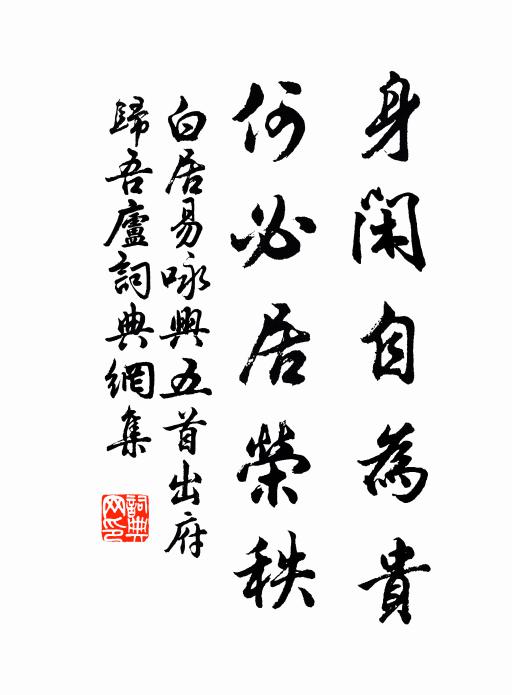 身閑自為貴
何必居榮秩
白居易咏興五首出府
歸吾廬詞典網集
詞典
网印